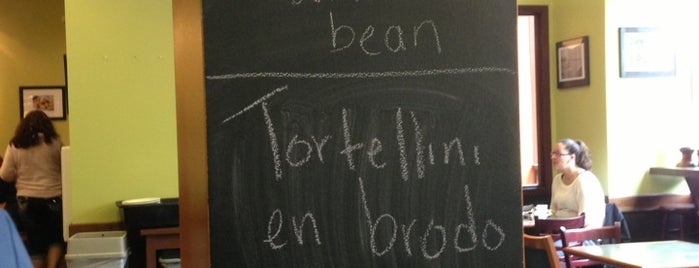 bean
Tortellini
en brodo